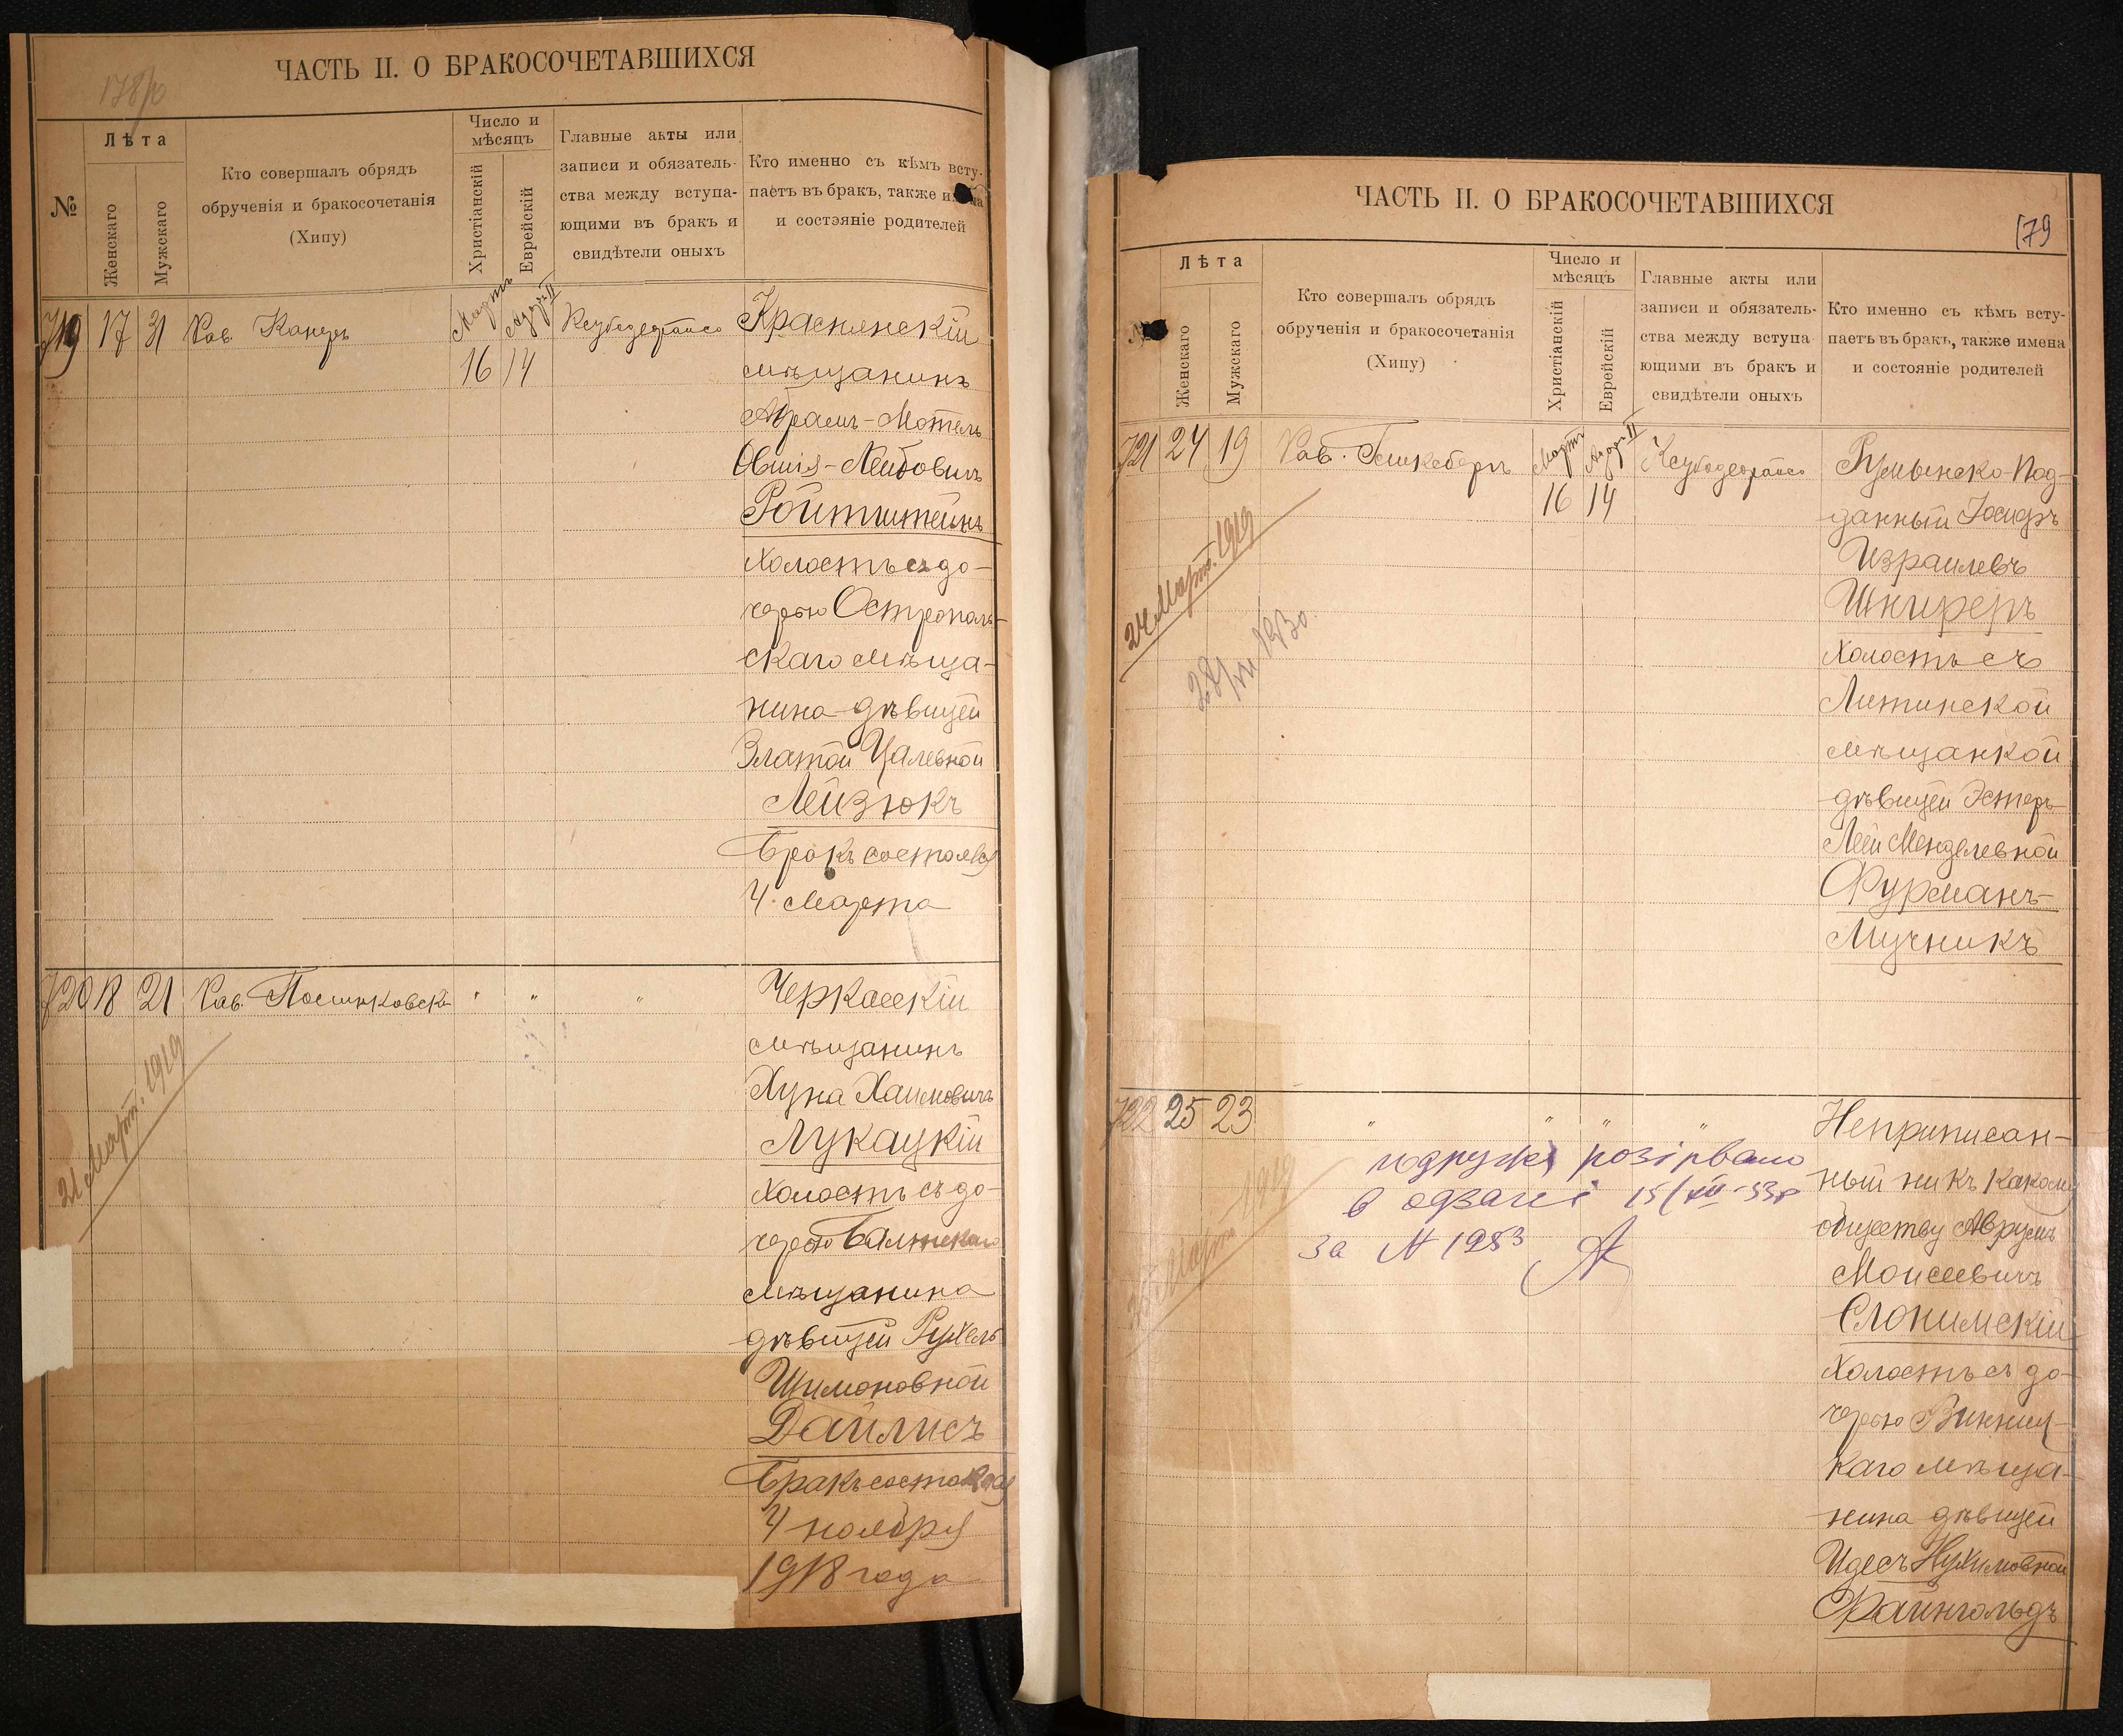 ЧАСТЬ II. О БРАКОСОЧЕТАВШИХСЯ
№
Лѣта
Женскаго
Мужскаго
Кто совершалъ обрядъ
обрученія и бракосочетанія
(Хипу)
Число и
мѣсяцъ
Христіанскій
Еврейскій
Главные акты или
записи и обязатель-
ства между вступа-
ющими въ бракъ и
свидѣтели оныхъ
Кто именно съ кѣмъ всту-
паетъ въ бракъ, также
и состояніе родителей
719 17 31 Рав.
Мартъ
16 14
Краснянскій
мѣщанинъ
Абрамъ-Мотель
Овшія-Лейбовичъ
Ройтштейнъ
холостъ съ до-
черью Острополь-
скаго мѣща-
нина дѣвицей
Златой Цалевной
Лейзюкъ
Бракъ состоялся
4 Марта
720 18 21 Рав.
" " "
21 Март. 1919
Черкасскій
мѣщанинъ
Хуна Хаимовичъ
Лукацкій
холостъ съ до-
черью Балтскаго
мѣщанина
дѣвицей Рухель
Шимоновной
Дайлисъ
Бракъ состоялся
4 ноября
1918 года
ЧАСТЬ II. О БРАКОСОЧЕТАВШИХСЯ
179
Лѣта
Женскаго
Мужскаго
Кто совершалъ обрядъ
обрученія и бракосочетанія
(Хипу)
Число и
мѣсяцъ
Христіанскій
Еврейскій
Главные акты или
записи и обязатель-
ства между вступа
ющими въ бракъ и
свидѣтели оныхъ
Кто именно съ кѣмъ всту-
паетъ въ бракъ, также имена
и состояніе родителей
721 24 19 Рав.
Мартъ
16 14
24 Март. 1919
Румынско-Под-
данный Іосифъ
Израилевъ
Шниреръ
холостъ съ
Литинской
мѣщанкой
дѣвицей Эстеръ-
Леей Менделевной
Фурманъ-
Мучникъ
722 25 23
" " " "
розірвано
в одзагсі 15/XII-33р
за N 1953
Март. 1919
Неприписан-
ный ни къ какому
обществу Аврумъ
Моисеевичъ
Слонимскій
холостъ съ до-
черью Винниц-
каго мѣща-
нина дѣвицей
Идесъ Нухимовной
Файнгольдъ